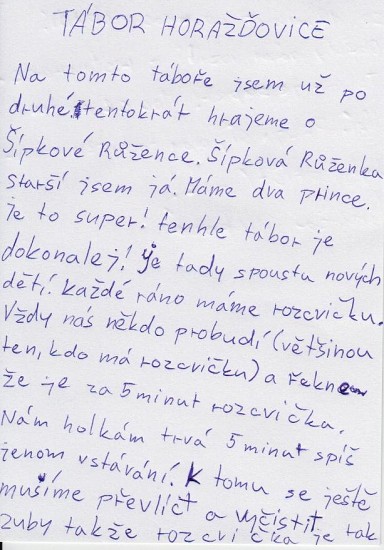 TÁBOR HORAŽĎOVICE
Na tomto táboře jsem už po
druhé, tentokrát hrajeme o
Šípkové Růžence. Šípková Růženka
starší jsem já. Máme dva prince.
je to super! tenhle tábor je
dokonalej! Je tady spousta nových
dětí. Každé ráno máme rozcvičku.
Vždy nás někdo probudí (většinou
ten, kdo má rozcvičku) a řekne
že je za 5 minut rozcvička.
Nám holkám trvá 5 minut spíš
jenom vstávání. K tomu se ještě
musíme převlíct a vyčistit
zuby takže rozcvička je tak